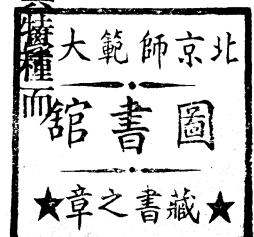 北京師範大
圖書舘
★藏書之章★
特種而